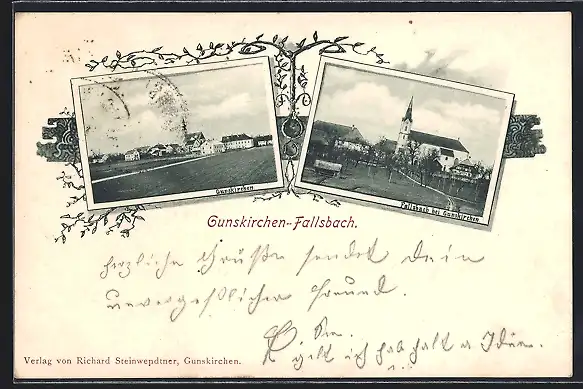 Gunskirchen
Fallsbach bei Gunskirchen
Gunskirchen-Fallsbach.
herzliche Grüße sendet Dein
unvergeßlicher Freund.
gelt ich hab halt a Ideen.
Verlag von Richard Steinwepdtner, Gunskirchen.